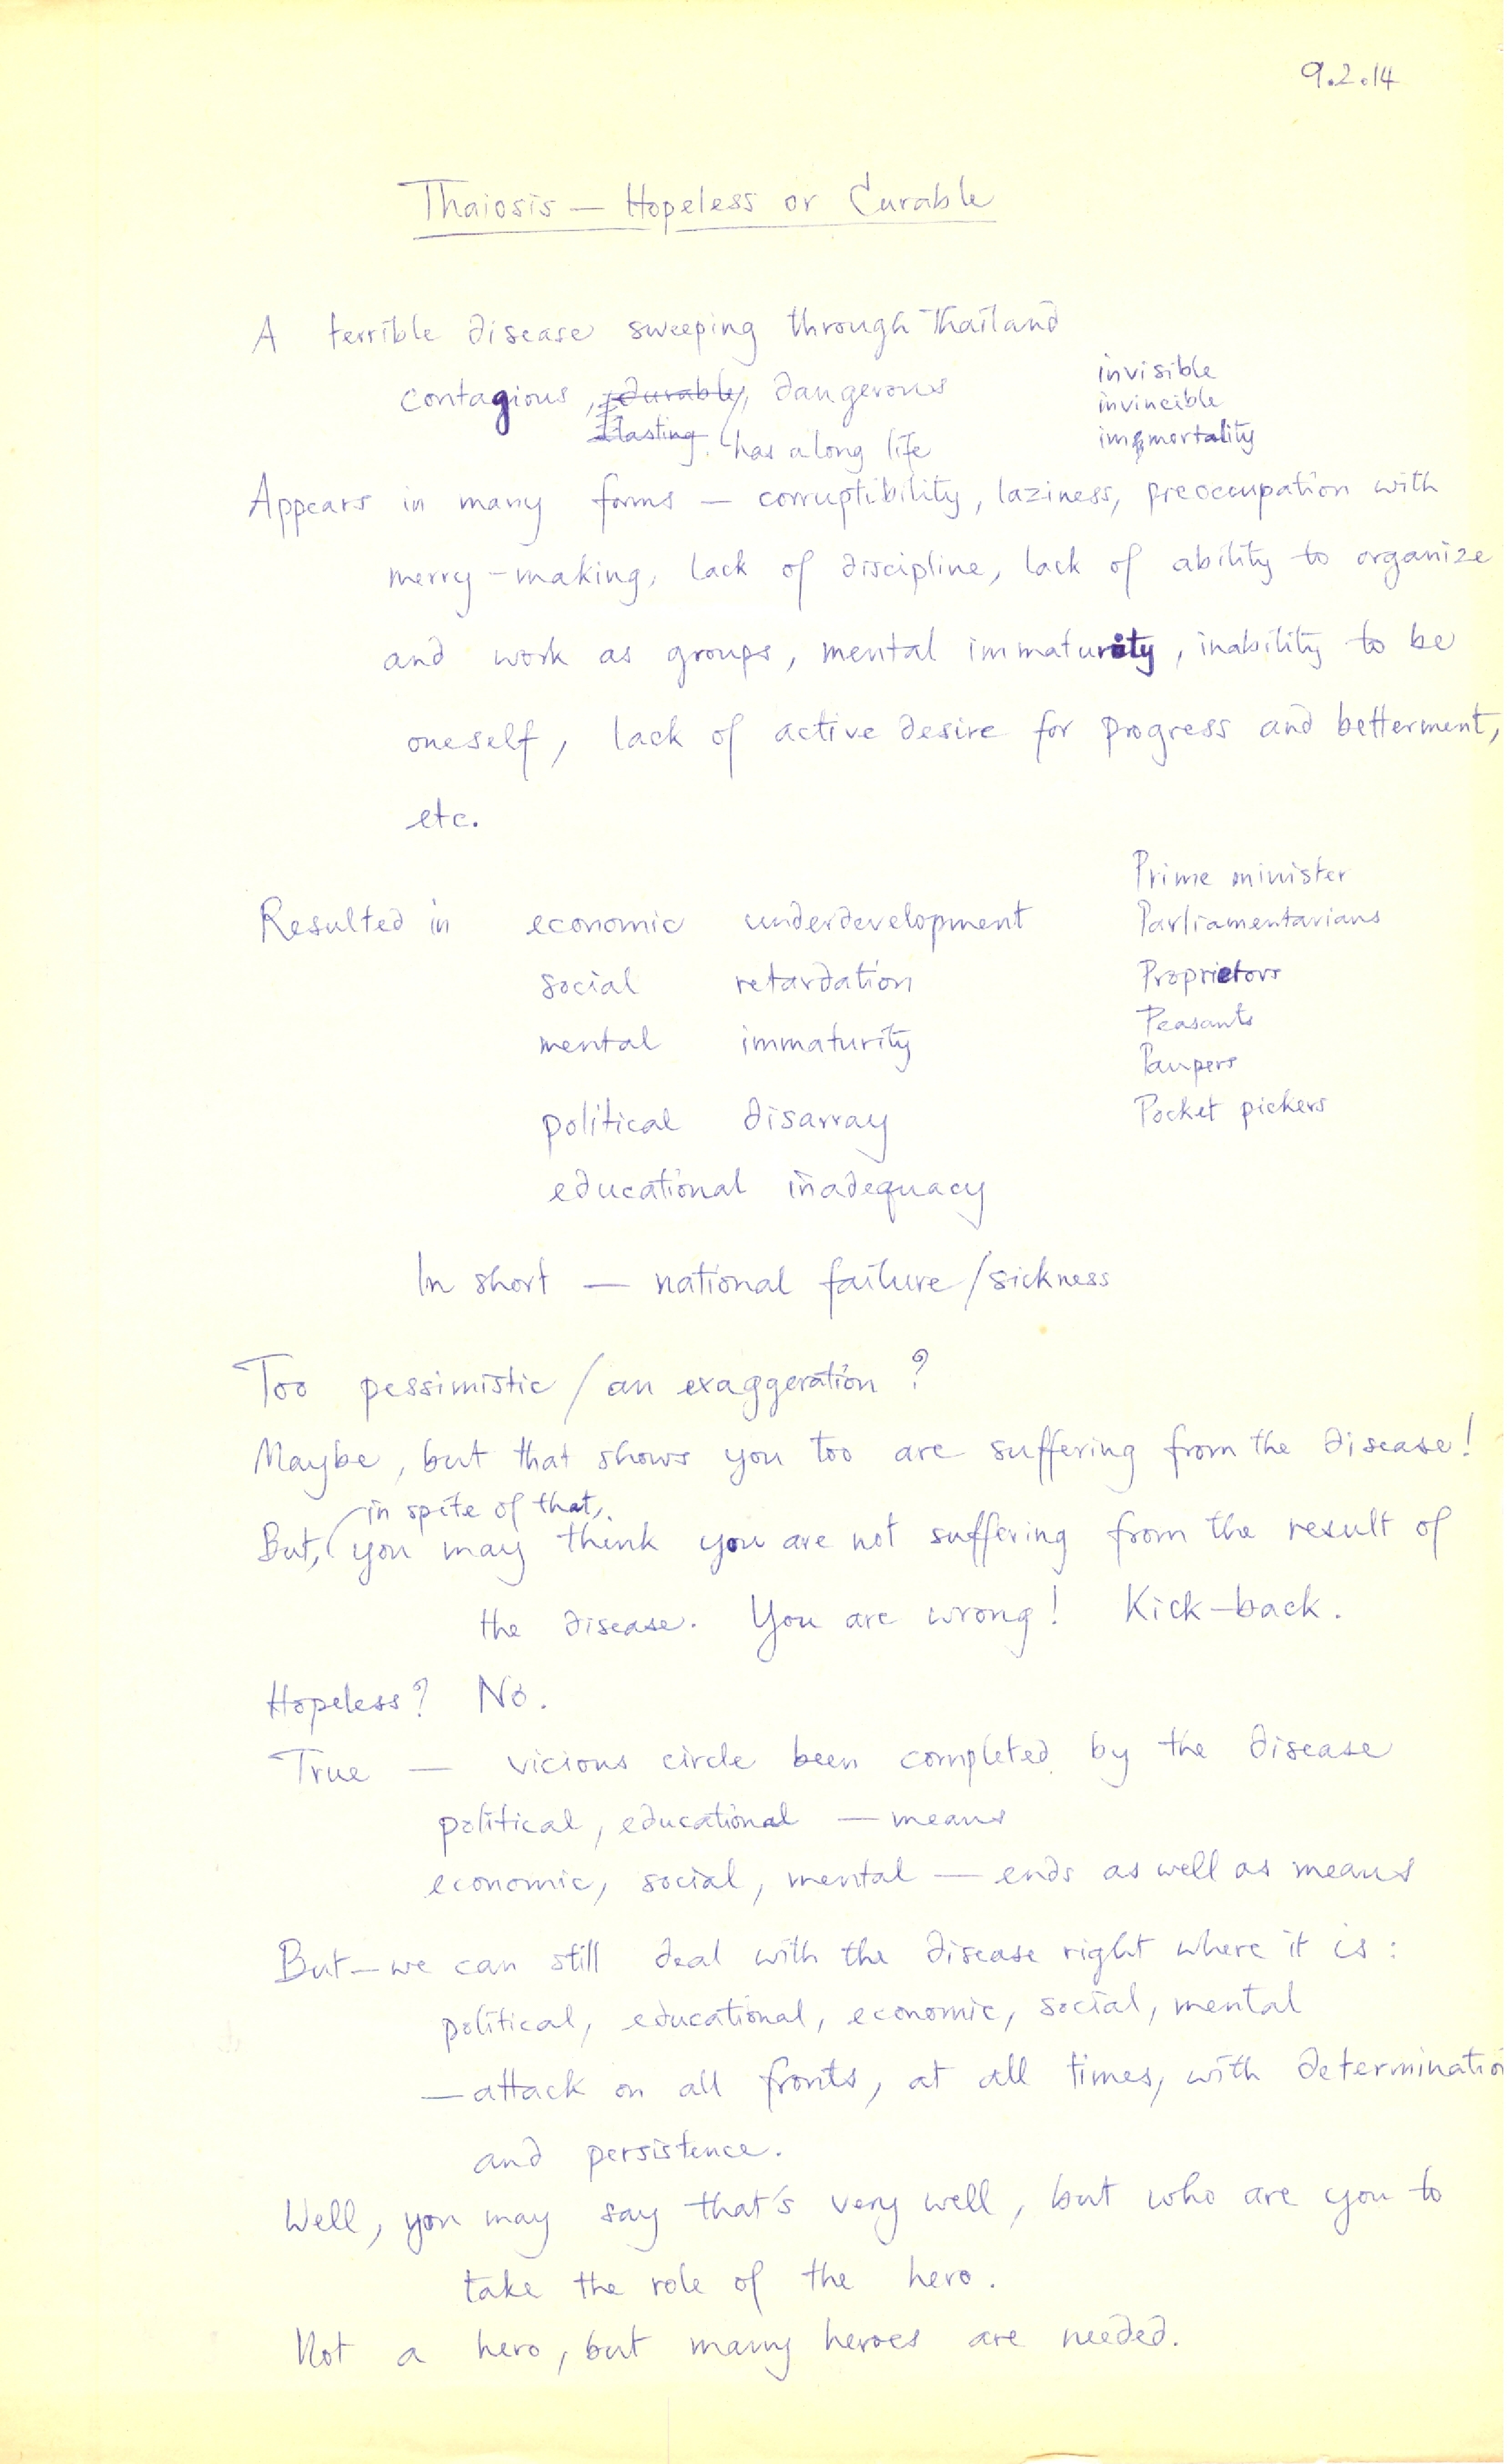 9.2.14
Thaiosis — Hopeless or Curable
A terrible disease sweeping through Thailand
contagious, durable, dangerous
lasting. has a long life
invisible
invincible
immortality
Appears in many forms — corruptibility, laziness, preoccupation with
merry-making, lack of discipline, lack of ability to organize
and work as groups, mental immaturity, inability to be
oneself, lack of active desire for progress and betterment,
etc.
Resulted in economic underdevelopment
social retardation
mental immaturity
political disarray
educational inadequacy
Prime minister
Parliamentarians
Proprietors
Peasants
Paupers
Pocket pickers
In short — national failure/sickness
Too pessimistic / an exaggeration?
Maybe, but that shows you too are suffering from the disease!
in spite of that,
But, you may think you are not suffering from the result of
the disease. You are wrong! Kick-back.
Hopeless? No.
True — vicious circle been completed by the disease
political, educational — means
economic, social, mental — ends as well as means
But—we can still deal with the disease right where it is:
political, educational, economic, social, mental
—attack on all fronts, at all times, with determinatio
and persistence.
Well, you may say that's very well, but who are you to
take the role of the hero.
Not a hero, but many heroes are needed.